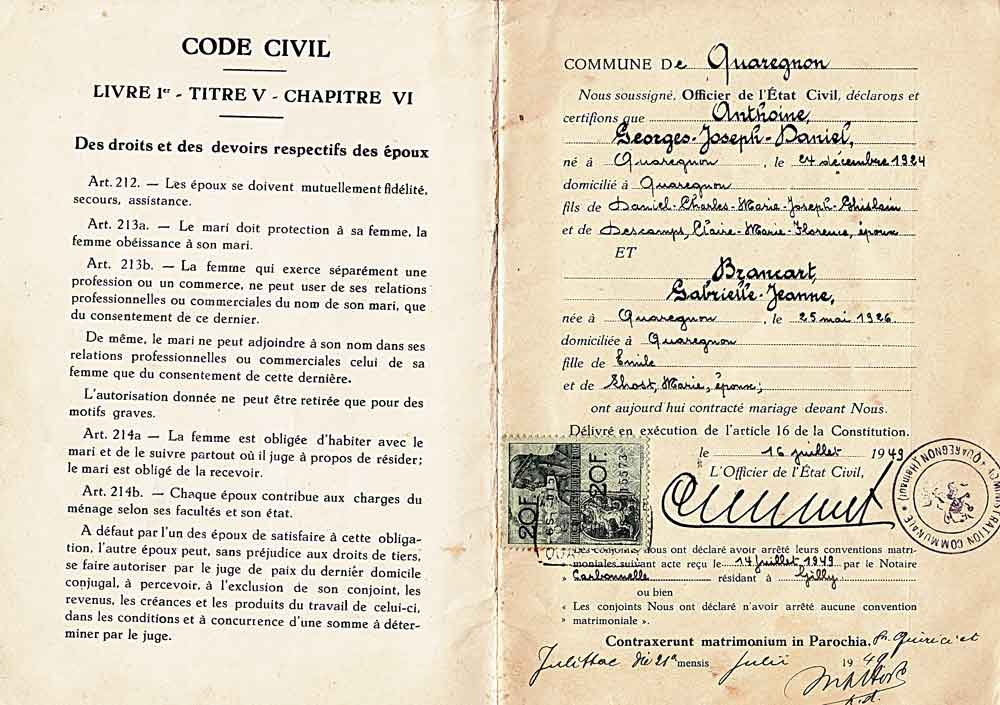 CODE CIVIL
LIVRE Ier - TITRE V - CHAPITRE VI
Des droits et des devoirs respectifs des époux
Art. 212. — Les époux se doivent mutuellement fidélité,
secours, assistance.
Art. 213a. — Le mari doit protection à sa femme, la
femme obéissance à son mari.
Art. 213b. — La femme qui exerce séparément une
profession ou un commerce, ne peut user de ses relations
professionnelles ou commerciales du nom de son mari, que
du consentement de ce dernier.
De même, le mari ne peut adjoindre à son nom dans ses
relations professionnelles ou commerciales celui de sa
femme que du consentement de cette dernière.
L'autorisation donnée ne peut être retirée que pour des
motifs graves.
Art. 214a — La femme est obligée d'habiter avec le
mari et de le suivre partout où il juge à propos de résider;
le mari est obligé de la recevoir.
Art. 214b. — Chaque époux contribue aux charges du
ménage selon ses facultés et son état.
A défaut par l'un des époux de satisfaire à cette obliga-
tion, l'autre époux peut, sans préjudice aux droits de tiers,
se faire autoriser par le juge de paix du dernier domicile
conjugal, à percevoir, à l'exclusion de son conjoint, les
revenus, les créances et les produits du travail de celui-ci,
dans les conditions et à concurrence d'une somme à déter-
miner par le juge.
COMMUNE De Quaregnon
Nous soussigné, Officier de l'État Civil, déclarons et
certifions que Anthoine,
Georges-Joseph-Daniel,
né à Quaregnon, le 24 décembre 1924
domicilié à Quaregnon
fils de Daniel-Charles-Marie-Joseph-Ghislain
et de Descamps, Claire-Marie-Florence, époux
ET
Brancart,
Gabrielle-Jeanne,
née à Quaregnon, le 25 mai 1926
domiciliée à Quaregnon
fille de Emile
et de Ghost, Marie, époux;
ont aujourd hui contracté mariage devant Nous.
Délivré en exécution de l'article 16 de la Constitution.
le 16 juillet 1949
L'Officier de l'État Civil,
20F
20F
ADMINISTRATION COMMUNALE * QUAREGNON (Hainaut) *
« Les conjoints Nous ont déclaré avoir arrêté leurs conventions matri-
» moniales suivant acte reçu le 14 juillet 1949 par le Notaire
» Carbonnelle résidant à Gilly
ou bien
« Les conjoints Nous ont déclaré n'avoir arrêté aucune convention
» matrimoniale ».
Contraxerunt matrimonium in Parochia, Quirici et
Julittae die 21a mensis Julii 1949